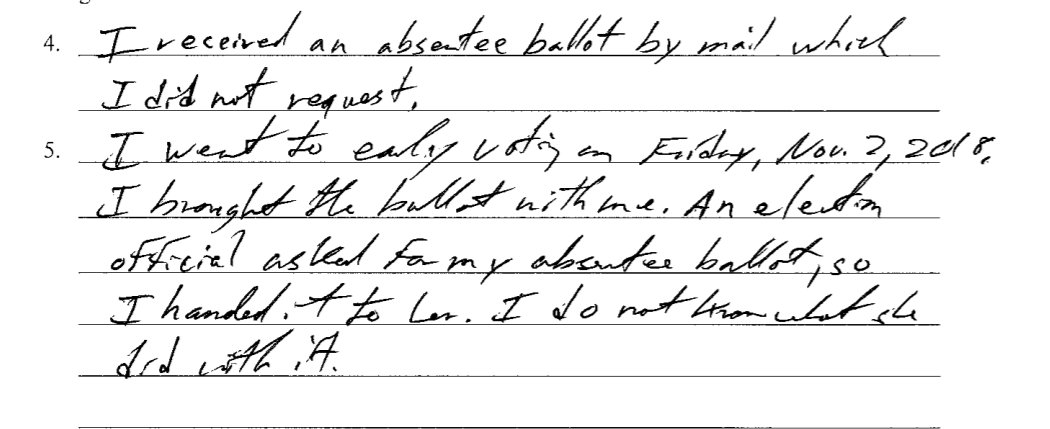 4. I received an absentee ballot by mail which
I did not request.
5. I went to early voting on Friday, Nov. 2, 2018.
I brought the ballot with me. An election
official asked for my absentee ballot, so
I handed it to her. I do not know what she
did with it.